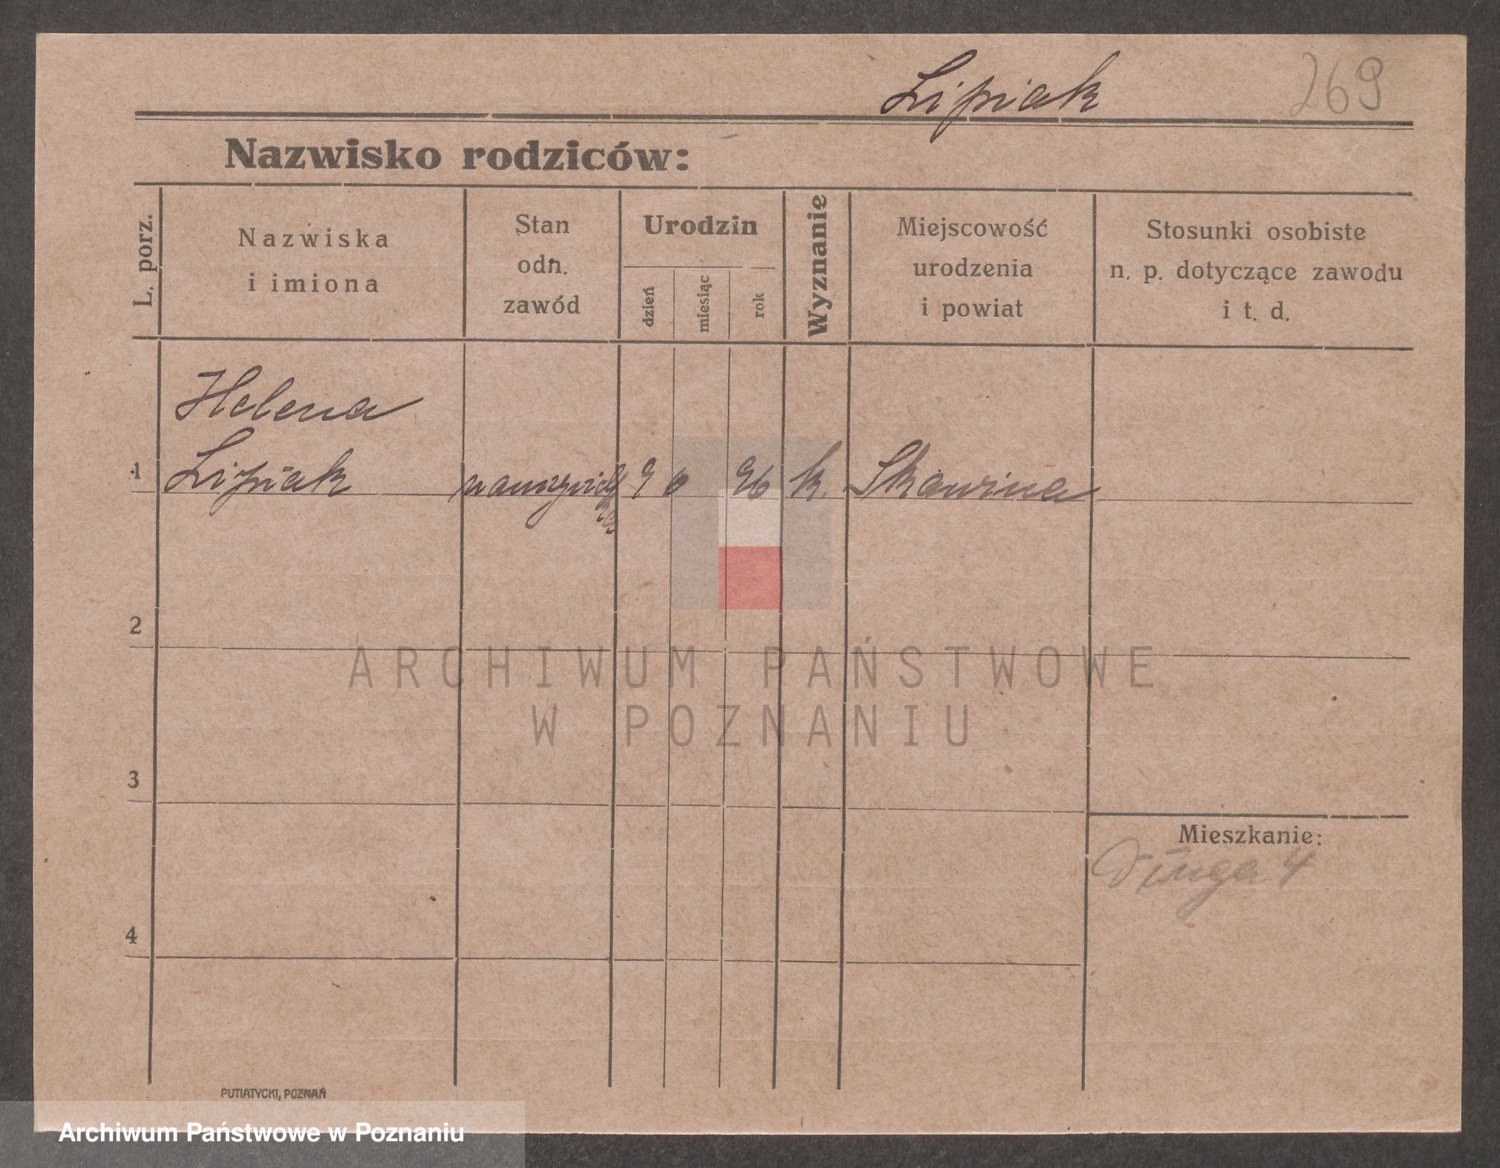 Lipiak 269
Nazwisko rodziców:
L. porz.
Nazwiska
i imiona
Stan
odn.
zawód
Urodzin
dzień
miesiąc
rok
Wyznanie
Miejscowość
urodzenia
i powiat
Stosunki osobiste
n. p. dotyczące zawodu
i t. d.
Helena
1 Lipiak 9 6 96 k. Skawina
2
ARCHIWUM PAŃSTWOWE
W POZNANIU
3
Mieszkanie:
Długa 4
4
PUTIATYCKI, POZNAŃ
Archiwum Państwowe w Poznaniu